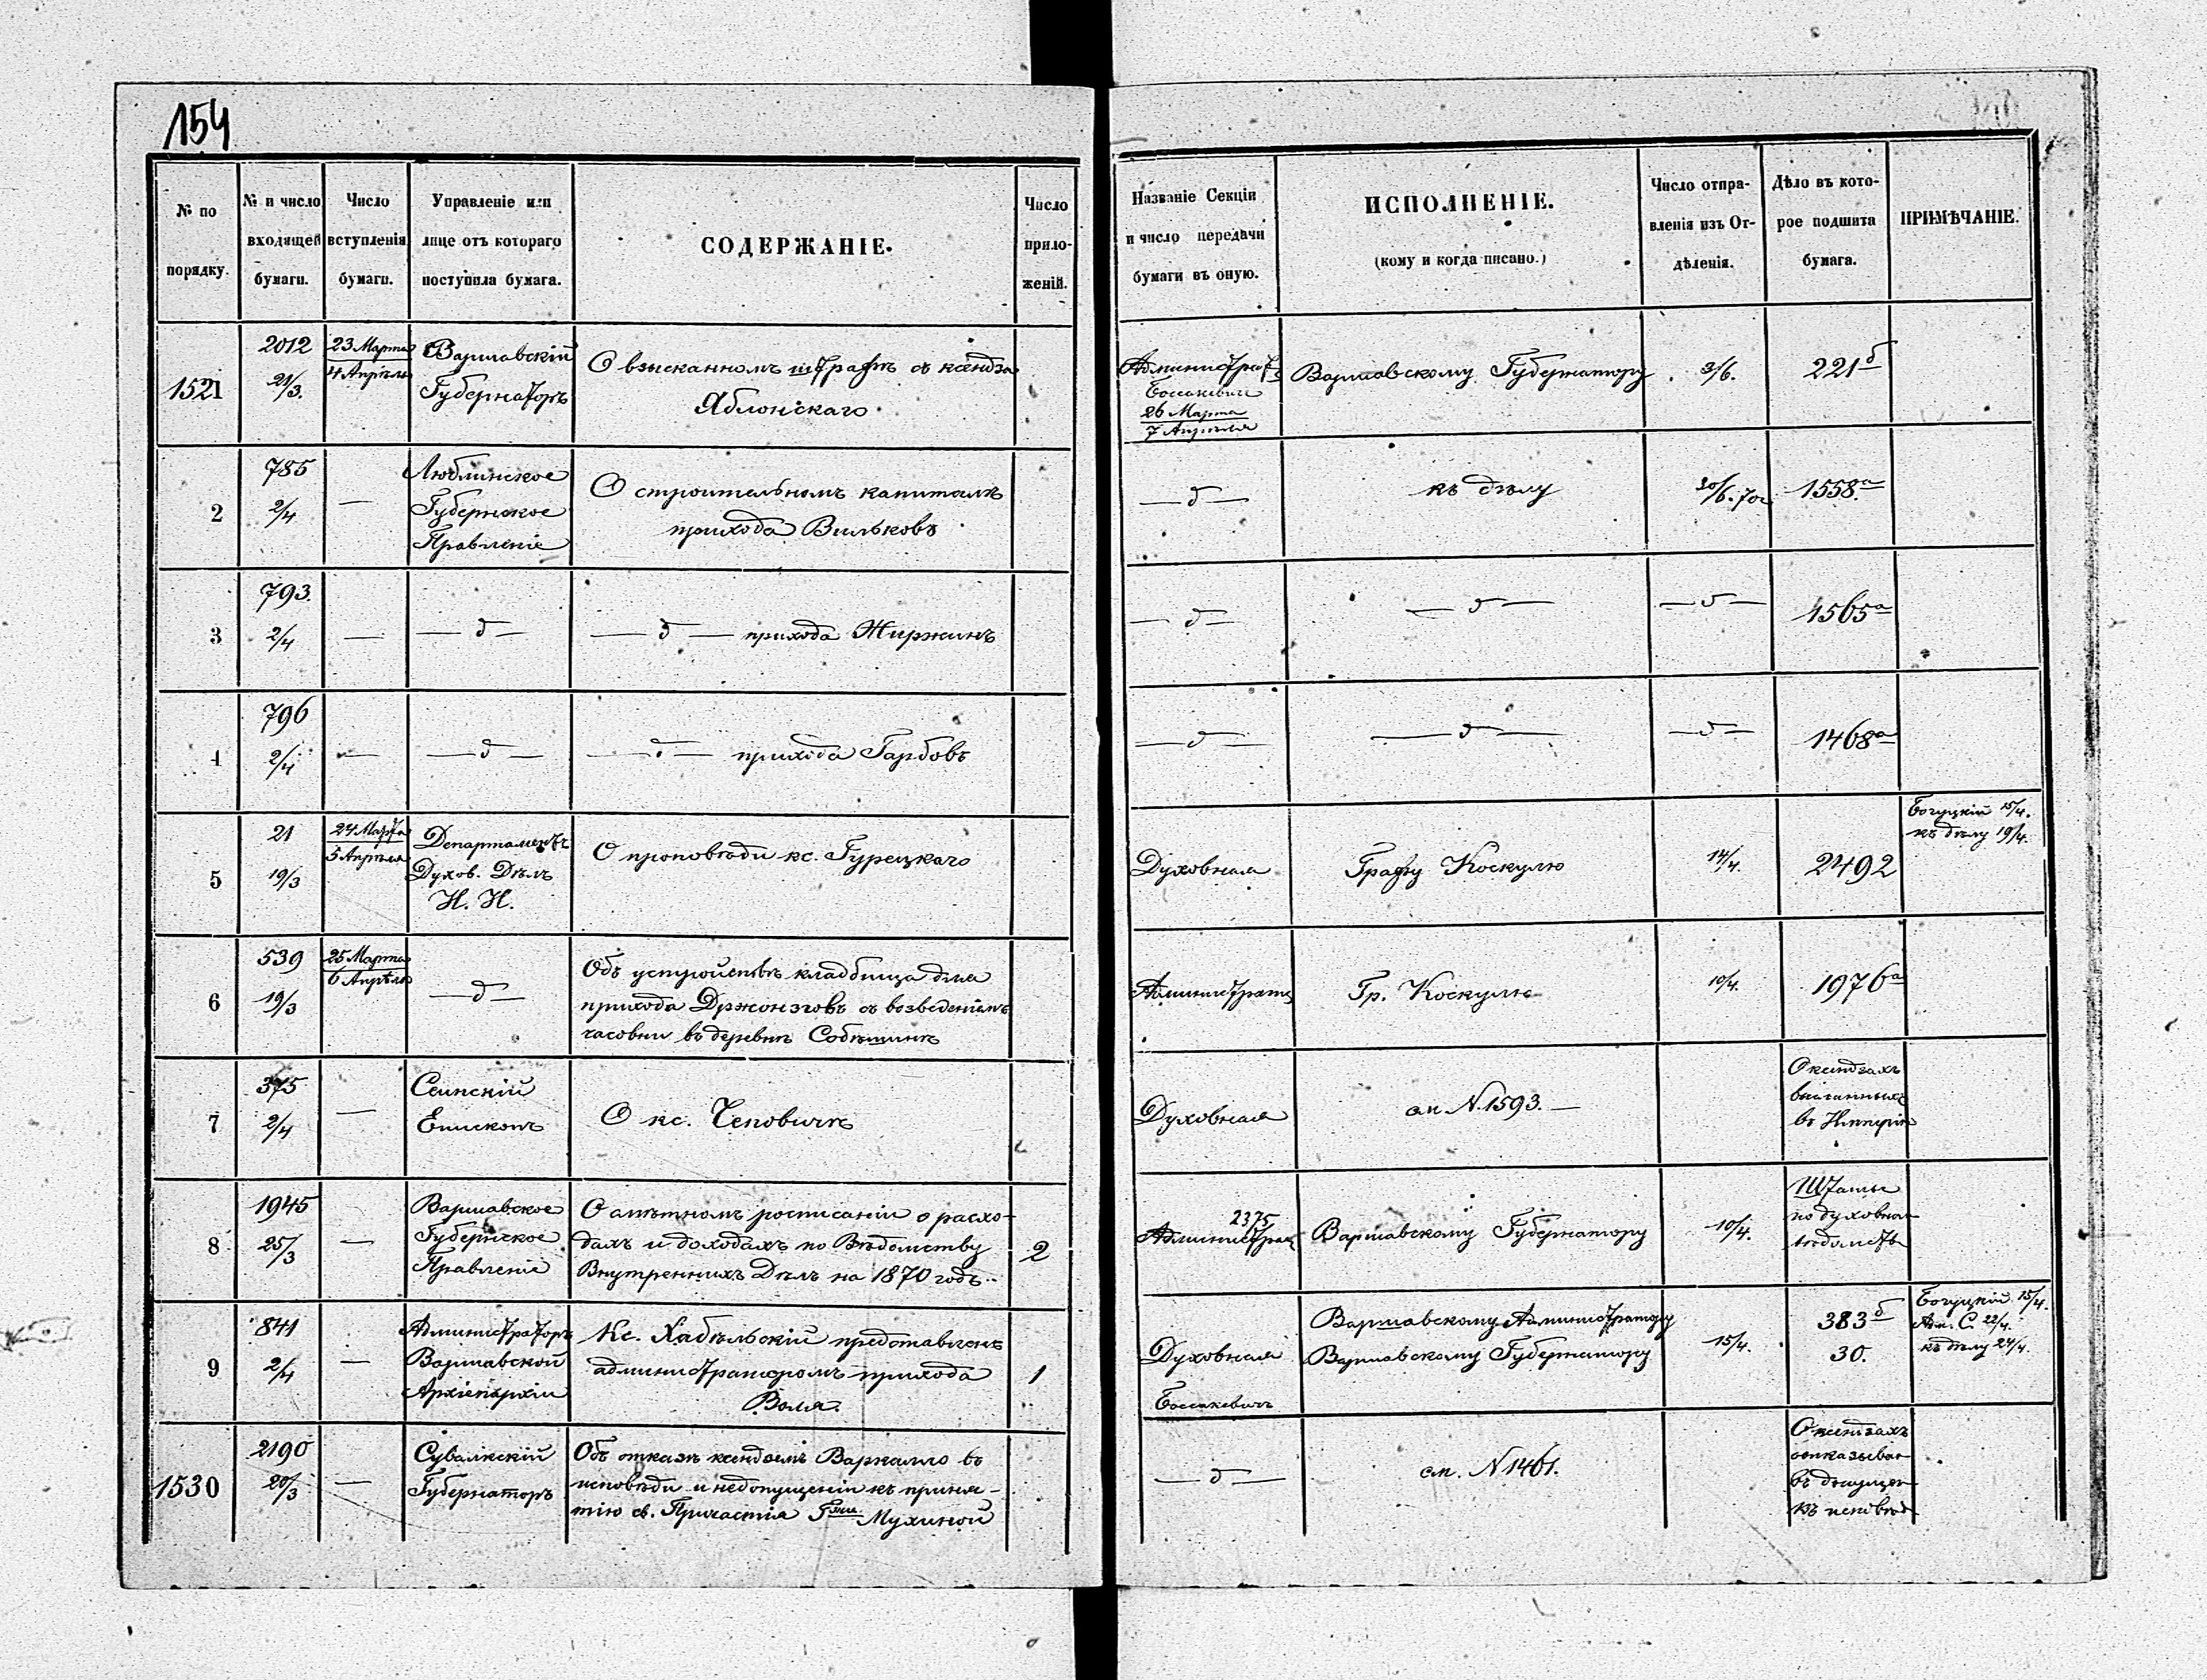 154
№ по
порядку.
№ и число
входящей
бумаги.
Число
вступленія
бумаги.
Управленіе или
лице отъ котораго
поступила бумага.
СОДЕРЖАНІЕ.
Число
прило-
женій.
Названіе Секціи
и число передачи
бумаги въ оную.
ИСПОЛНЕНІЕ.
(кому и когда писано.)
Число отпра-
вленія изъ От-
дѣленія.
Дѣло въ кото-
рое подшита
бумага.
ПРИМѢЧАНІЕ.
1521
2012
21/3.
23 Марта
4 Апрѣля
Варшавскій
Губернаторъ
О взысканномъ штрафѣ съ ксендза
Яблонскаго
Администрат
Боссакевич
26 Марта
7 Апрѣля
Варшавскому Губернатору
3/6.
221б
2
785
2/4
—
Люблинское
Губернское
Правленіе
О строительномъ капиталѣ
прихода Вильковъ
— д —
къ дѣлу
20/6. 70г
1558.а
3
793.
2/4
—
— д —
— д — прихода Жиржинъ
— д —
— д —
— д —
1565а
4
796
2/4
—
— д —
— д — прихода Гарбовъ
— д —
— д —
— д —
1468а
5
21
19/3
24 Марта
5 Апрѣля
Департаментъ
Духов. Дѣлъ
И. И.
О проповѣди кс. Гурецкаго
Духовная
Графу Коскулю
14/4.
2492
Богуцкій 15/4.
къ дѣлу 19/4.
6
539
19/3
25 Марта
6 Апрѣля
— д —
Объ устройствѣ кладбища для
прихода Држонзговъ съ возведеніемъ
часовни въ деревнѣ Собѣшинъ
Администрат
Гр. Коскулю
10/4.
1976а
7
375
2/4
—
Сеинскій
Епископъ
О кс. Чеповичѣ
Духовная
см. N. 1593. —
О ксендзахъ
высланныхъ
въ Имперію
8
1945
25/3
—
Варшавское
Губернское
Правленіе
О смѣтномъ росписаніи о расхо-
дахъ и доходахъ по Вѣдомству
Внутреннихъ Дѣлъ на 1870 годъ.
2
2375
Администрац
Варшавскому Губернатору
10/4.
Штаты
по духовном
вѣдомств
9
841
2/4
—
Администраторъ
Варшавской
Архіепархіи
Кс. Хабѣльскій представленъ
администраторомъ прихода
Воля.
1
Духовная
Боссакевичъ
Варшавскому Администратору
Варшавскому Губернатору
15/4.
383б
30.
Богуцкій 15/4.
22/4.
къ дѣлу 24/4.
1530
2190
20/3
—
Сувалкскій
Губернаторъ
Объ отказѣ ксендземъ Варкалло въ
исповѣди и недопущеніи къ приня-
тію св. Причастія Гжи Мухиной
— д —
см. N 1461.
О ксендзахъ
отказыван
къ исповѣд